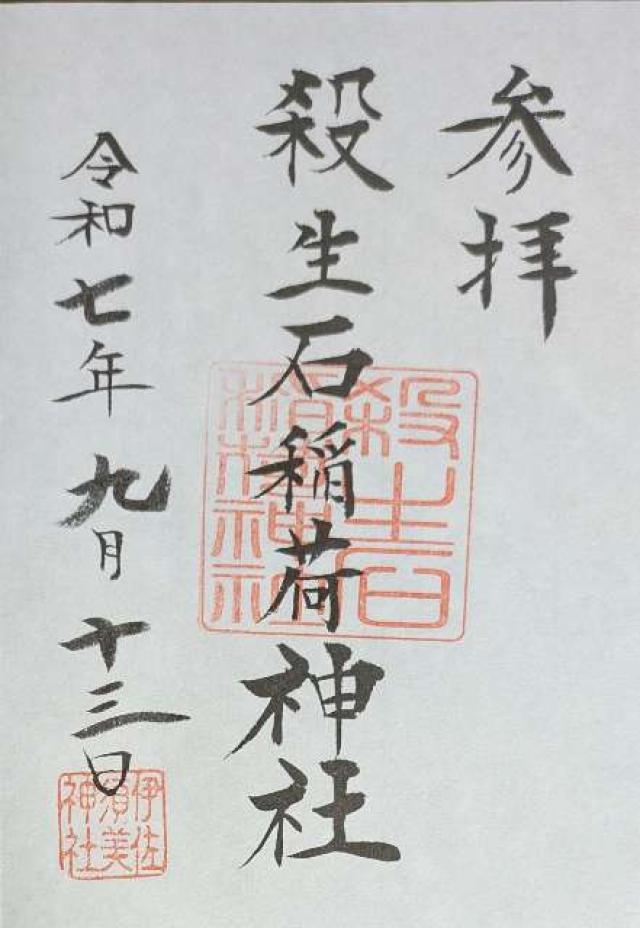 参拝
殺生石稲荷神社
令和七年九月十三日
殺生石
稲荷神社
伊佐
須美
神社